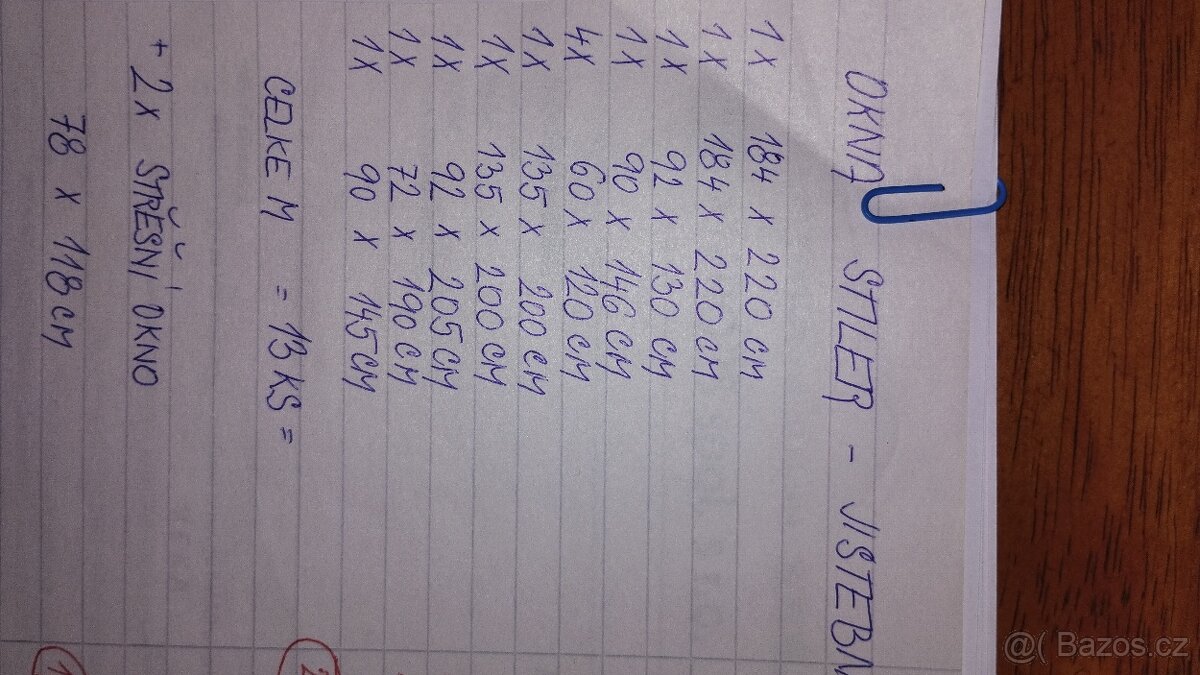 OKNA STYLER - JISTEBN
1x 184 x 220 cm
1x 184 x 220 cm
1x 92 x 130 cm
1x 90 x 146 cm
4x 60 x 120 cm
1x 135 x 200 cm
1x 135 x 200 cm
1x 92 x 205 cm
1x 72 x 190 cm
1x 90 x 145 cm
CELKEM = 13 KS =
+ 2x STŘEŠNÍ OKNO
78 x 118 cm
@( Bazos.cz